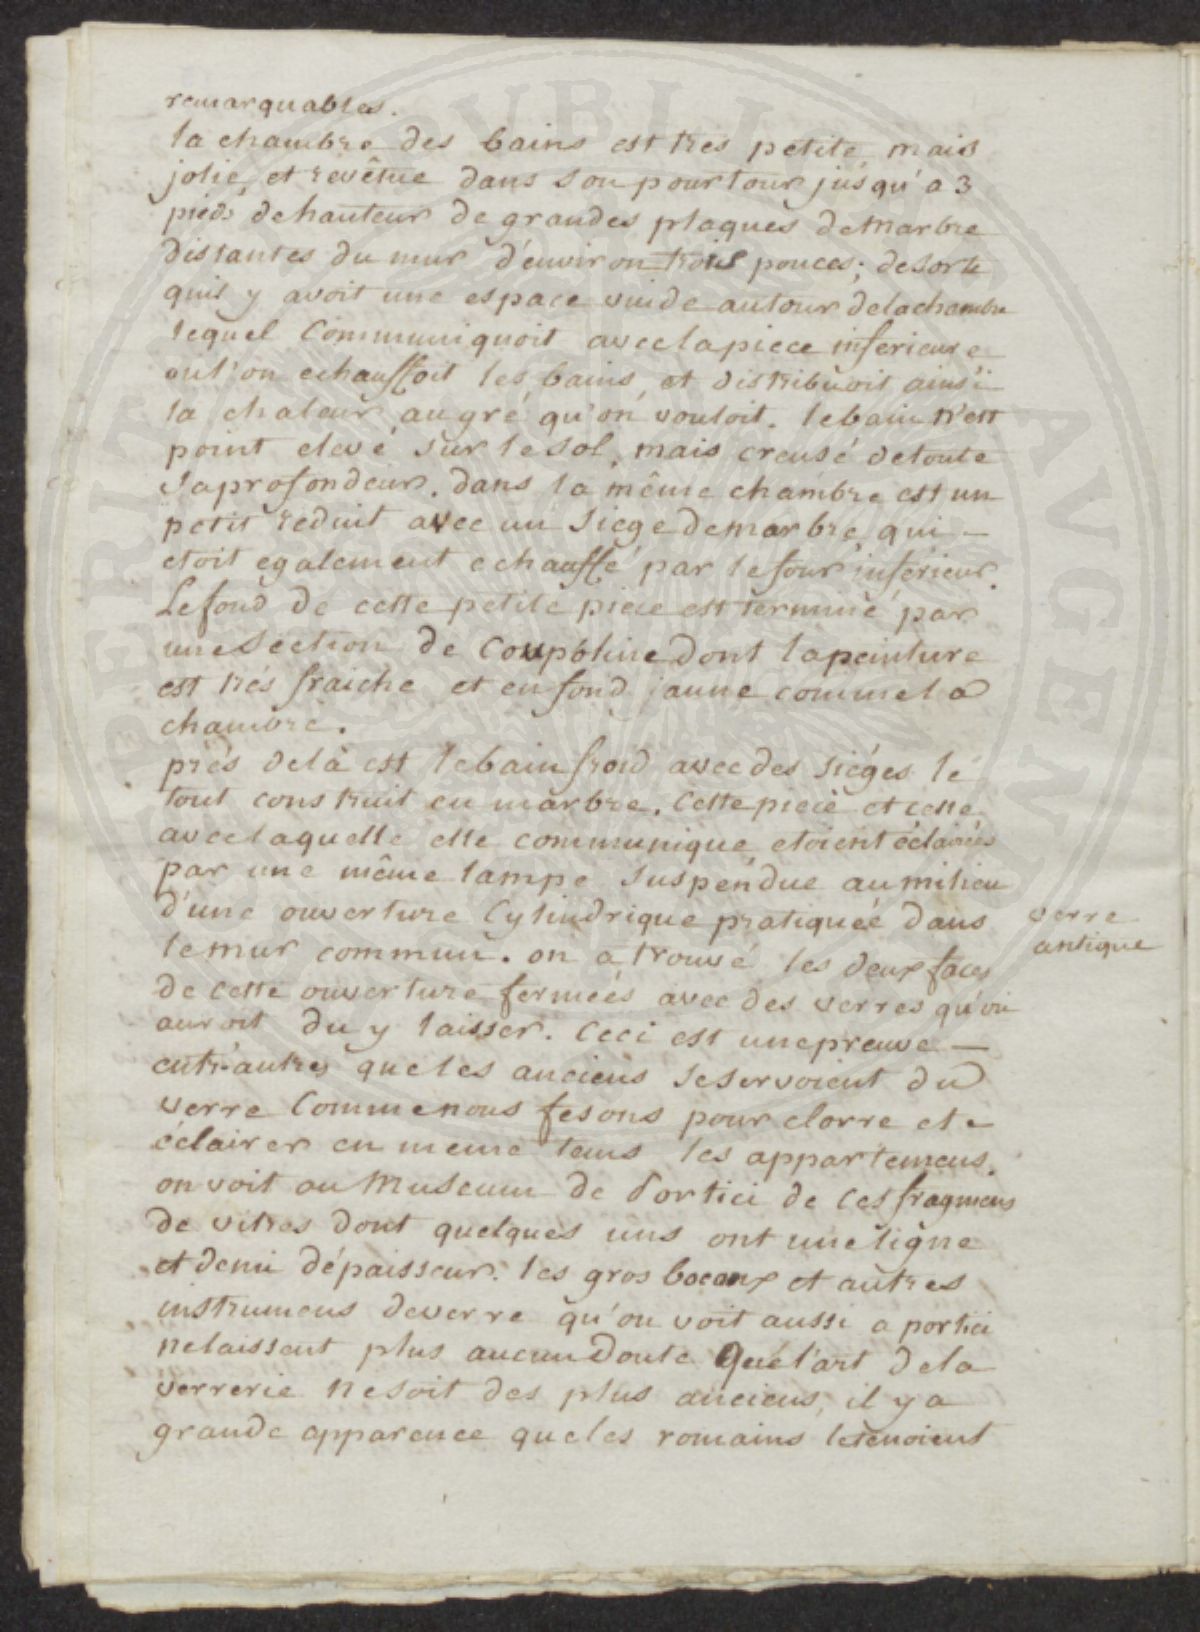 remarquables.
la chambre des bains est tres petite, mais
jolie, et revêtue dans son pourtour jusqu'a 3
pieds de hauteur de grandes plaques de marbre
distantes du mur d'environ trois pouces; de sorte
quil y avoit une espace vuide autour de la chambre
lequel Communiquoit avec la piece inferieure
ou l'on echauffoit les bains, et distribuoit ainsi
la chaleur au gré qu'on vouloit. le bain n'est
point elevé sur le sol, mais creusé de toute
sa profondeur. dans la même chambre est un
petit reduit avec un siege de marbre, qui –
etoit egalement echauffé par le four inférieur.
Le fond de cette petite piece est terminé par
une section de Coupoline dont la peinture
est très fraiche et en fond jaune comme la
chambre.
près delà est le bain froid avec des siéges le
tout construit en marbre. Cette piece et celle
avec laquelle elle communique, etoient éclairées
par une même lampe suspendue au milieu
d'une ouverture Cylindrique pratiquée dans
le mur commun. on a trouvé les deux faces
de cette ouverture fermées avec des verres qu'on
auroit du y laisser. Ceci est une preuve –
entr'autres que les anciens se servoient du
verre Comme nous fesons pour clorre et
éclairer en meme tems les appartemens.
on voit au Museum de Portici de ces fragmens
de vitres dont quelques uns ont une ligne
et demi d'épaisseur. les gros bocaux et autres
instrumens de verre qu'on voit aussi a portici
ne laissent plus aucun Doute Que l'art de la
verrerie ne soit des plus anciens, il y a
grande apparence que les romains le tenoient
verre
antique
PVBLI
AVGEN
PERIT